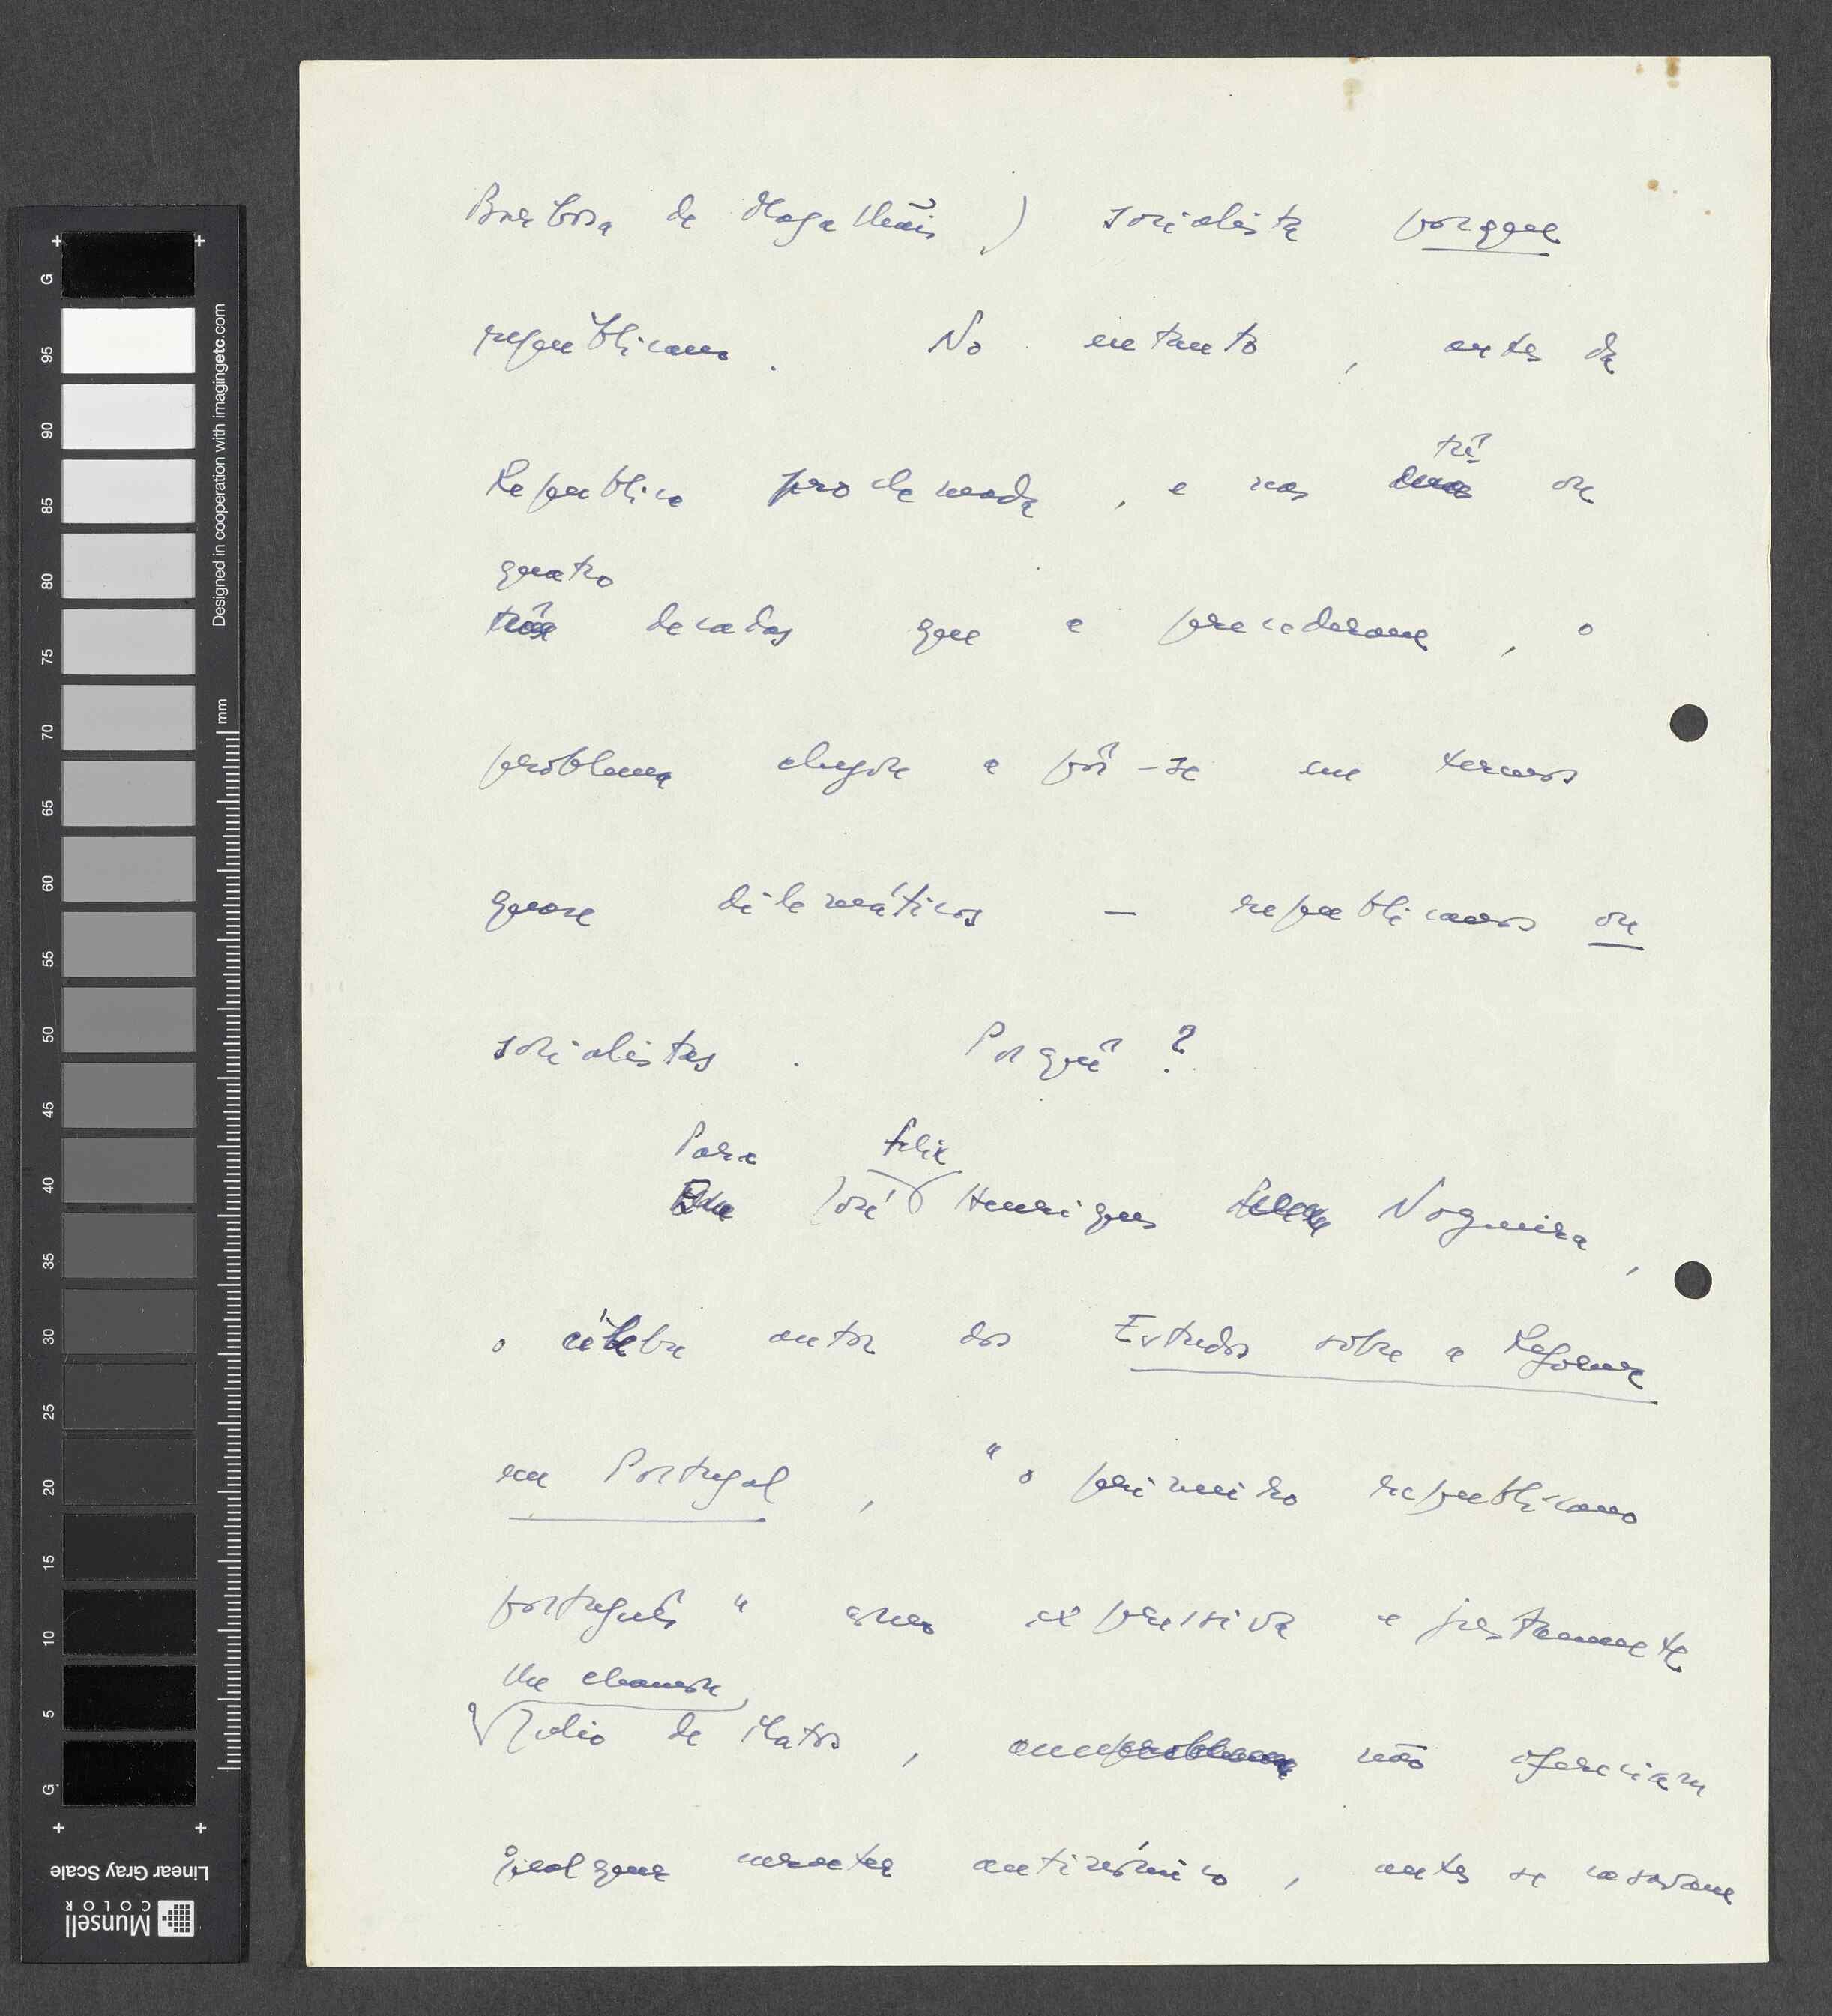 Barbosa de Magalhãis) socialista porque
republicano. No entanto, antes da
três
Republica proclamada, e nas duas ou
quatro
três decadas que a precederam, o
problema chegou a pôr-se em termos
quase dilemáticos — republicanos ou
socialistas. Porquê?
Para Felix
José Henriques Nogueira,
o célebre autor dos Estudos sôbre a Reforma
em Portugal, "o primeiro republicano
português" como expressiva e justamente
lhe chamou
Julio de Matos, problema não ofereciam
qualquer caracter antinómico, antes se casavam
G 95 90 85 80 75 70 65 60 55 50 45 40 35 30 25 20 15 10 5 G
mm
Designed in cooperation with imagingetc.com
Linear Gray Scale
Munsell
COLOR